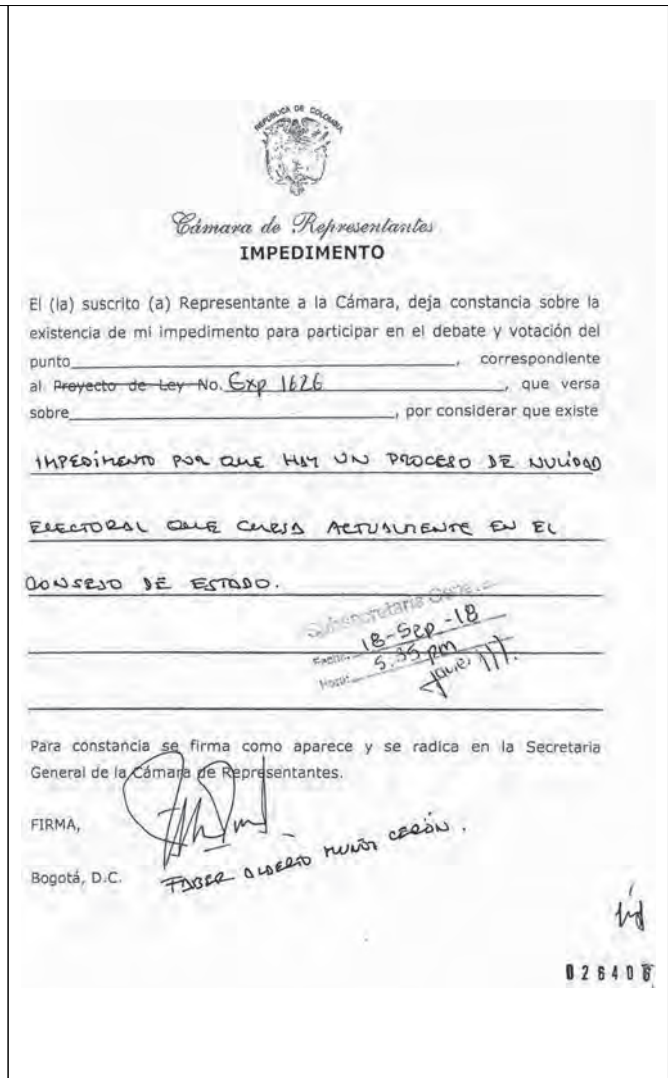 REPUBLICA DE COLOMBIA
Cámara de Representantes
IMPEDIMENTO
El (la) suscrito (a) Representante a la Cámara, deja constancia sobre la
existencia de mi impedimento para participar en el debate y votación del
punto____________________, correspondiente
al Proyecto de Ley No. Exp 1626, que versa
sobre____________________, por considerar que existe
IMPEDIMENTO POR QUE HAY UN PROCESO DE NULIDAD
ELECTORAL QUE CURSA ACTUALMENTE EN EL
CONSEJO DE ESTADO.
Subsecretaria General
Fecha: 18-Sep-18
Hora: 5:35 pm
Javier
Para constancia se firma como aparece y se radica en la Secretaria
General de la Cámara de Representantes.
FIRMA,
FABER ALBERTO MUÑOZ CERÓN.
Bogotá, D.C.
026406